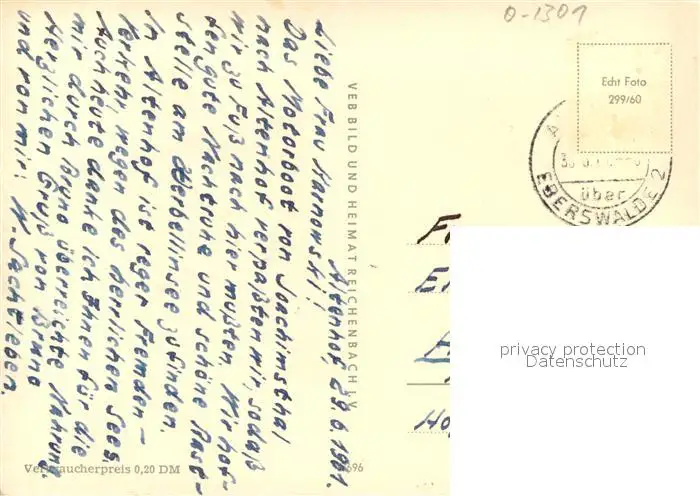 O-1301
Echt Foto
299/60
über
EBERSWALDE 2
Altenhof, 29.6.1961.
Liebe Frau Harnowski!
Das Motorboot von Joachimsthal
nach Altenhof verpaßten wir, sodaß
wir zu Fuß nach hier mußten. Wir hof-
ten gute Nachtruhe und schöne Rast-
stelle am Werbellinsee zu finden.
In Altenhof ist reger Fremden-
verkehr, wegen des herrlichen Sees.
Auch heute danke ich Ihnen für die
mir durch Bruno überreichte Nahrung.
Herzlichen Gruß von Bruno
und von mir: W. Sachtleben.
VEB BILD UND HEIMAT REICHENBACH I. V.
Verbraucherpreis 0,20 DM
696
privacy protection
Datenschutz